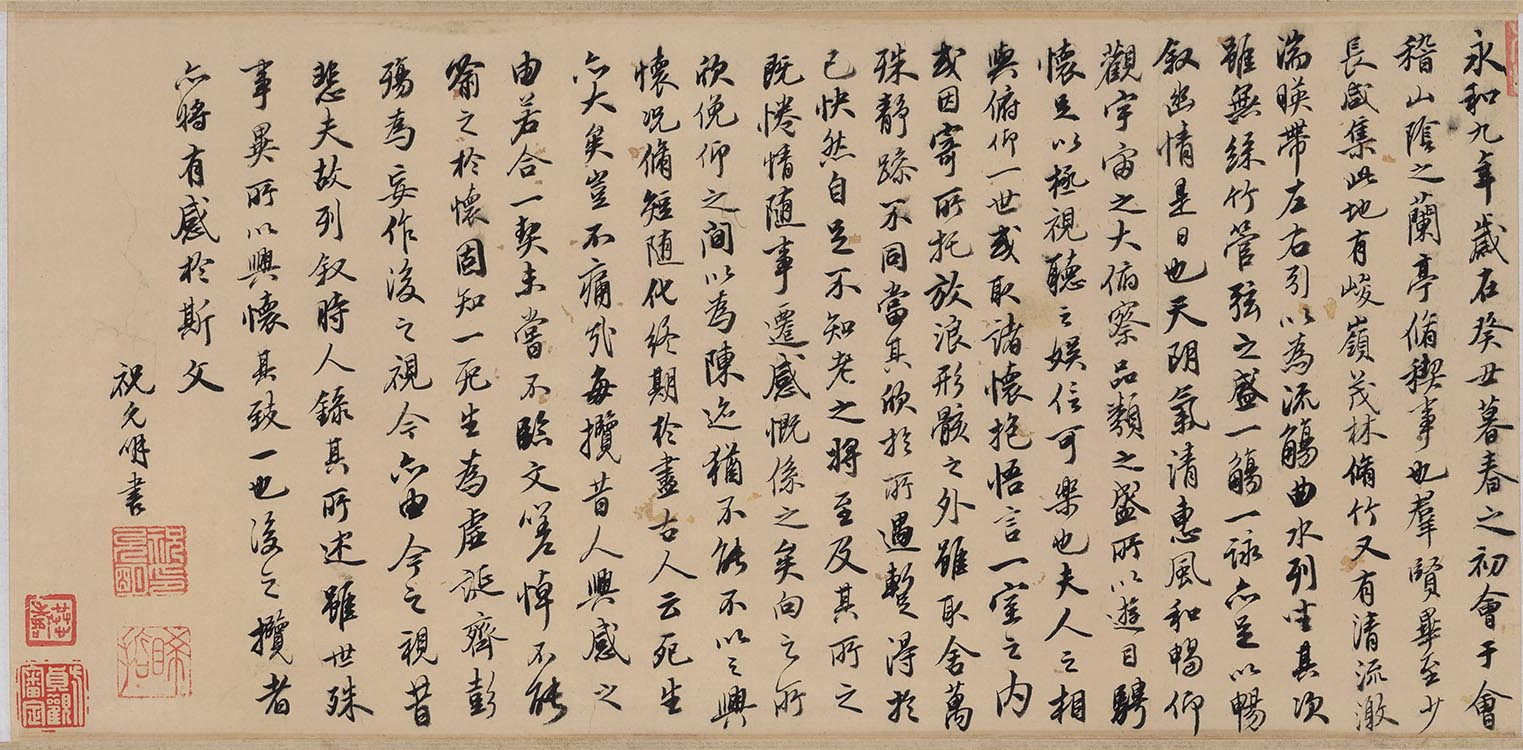 永和九年歲在癸丑暮春之初會于會
稽山陰之蘭亭脩稧事也羣賢畢至少
長咸集此地有峻嶺茂林脩竹又有清流激
湍暎帶左右引以為流觴曲水列坐其次
雖無絲竹管弦之盛一觴一詠亦足以暢
叙幽情是日也天朗氣清惠風和暢仰
觀宇宙之大俯察品類之盛所以遊目騁
懷足以極視聽之娛信可樂也夫人之相
與俯仰一世或取諸懷抱悟言一室之內
或因寄所托放浪形骸之外雖取舍萬
殊靜躁不同當其欣於所遇蹔得於
己快然自足不知老之將至及其所之
既惓情隨事遷感慨係之矣向之所
欣俛仰之間以為陳迹猶不能不以之興
懷況脩短隨化終期於盡古人云死生
亦大矣豈不痛哉每攬昔人興感之
由若合一契未嘗不臨文嗟悼不能
喻之於懷固知一死生為虛誕齊彭
殤為妄作後之視今亦由今之視昔
悲夫故列叙時人錄其所述雖世殊
事異所以興懷其致一也後之攬者
亦將有感於斯文
祝允明書